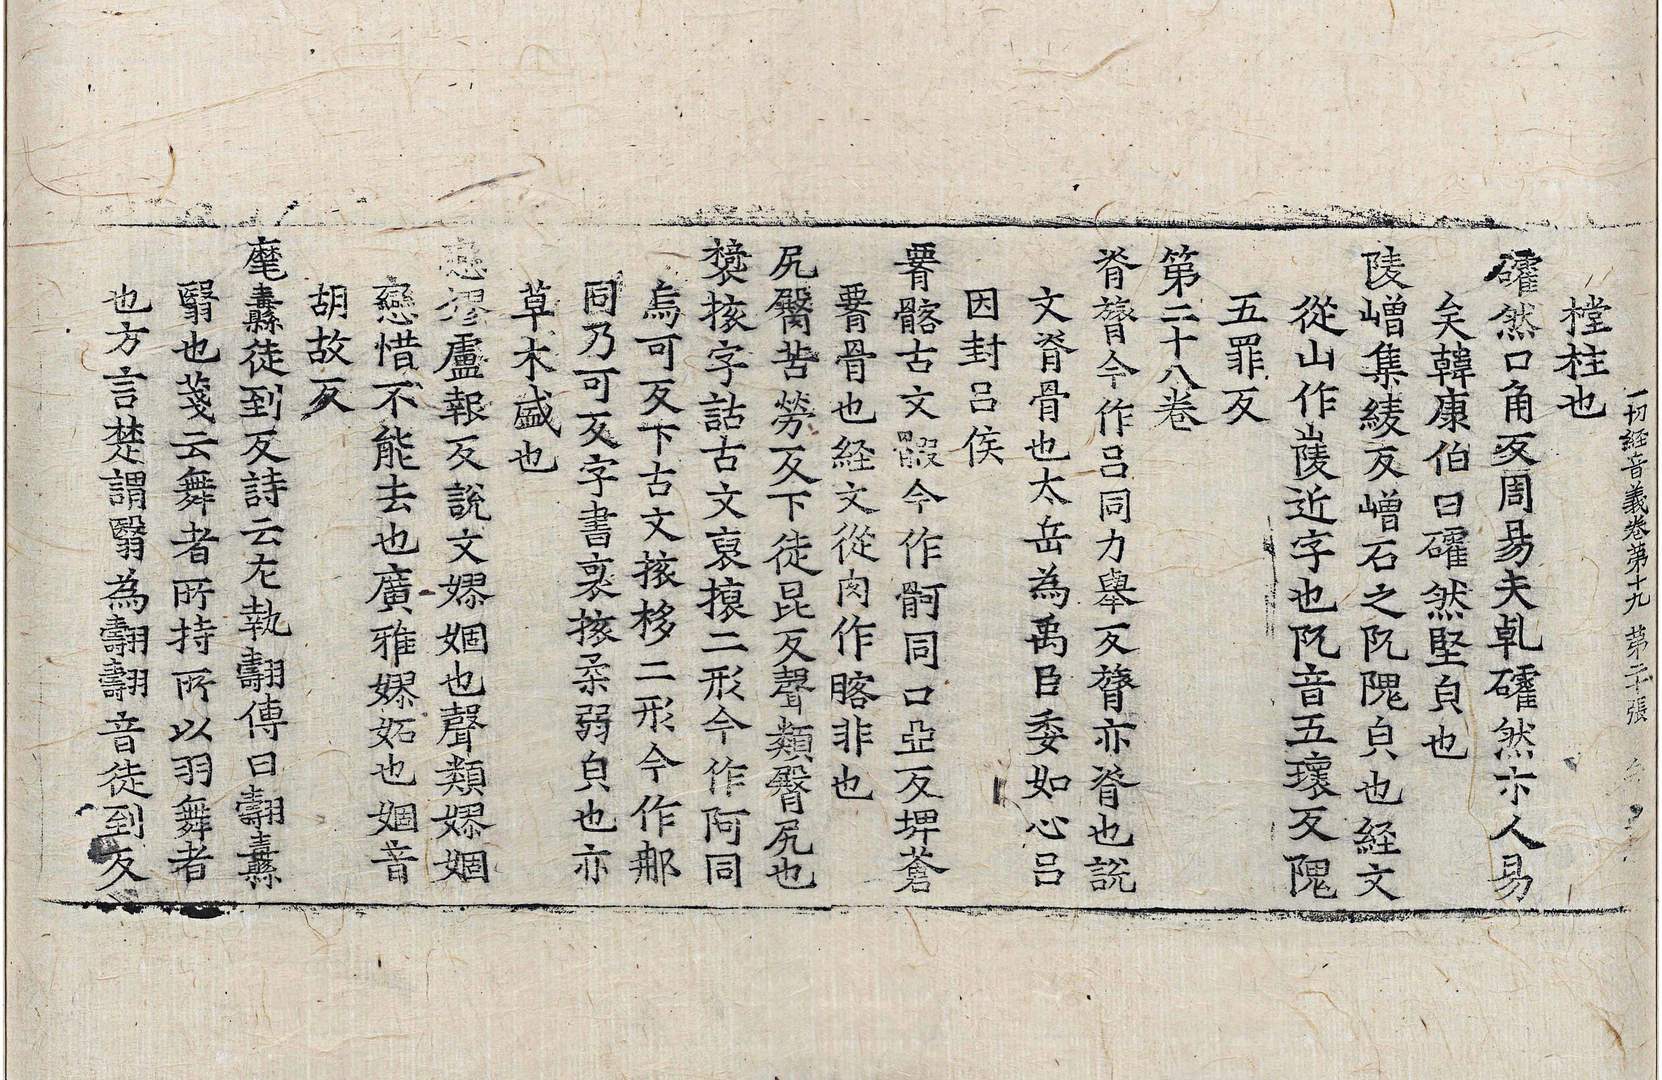 一切経音義卷第十九 第二十張
樘柱也
礭然口角反周易夫乹礭然亦人易
矣韓康伯曰礭然堅㒵也
陵嶒集綾反嶒石之阮隗㒵也経文
從山作崚近字也阮音五瓌反隗
五罪反
第二十八卷
脊膂今作吕同力舉反膂亦脊也說
文脊骨也太岳為禹臣委如心吕
因封吕侯
䯊古文䯊今作䯊同口亞反埤蒼
骨也経文從肉作䯊非也
尻臋苦勞反下徒昆反聲類臀尻也
字詁古文二形今作阿同
烏可反下古文㧡栘二形今作郍
同乃可反字書㧡柔弱㒵也亦
草木盛也
盧報反說文嫪婟也聲類嫪婟
戀惜不能去也廣雅嫪妬也婟音
胡故反
麾纛徒到反詩云左執翿傳曰翿纛
翳也箋云舞者所持所以羽舞者
也方言楚謂翳為翿翿音徒到反